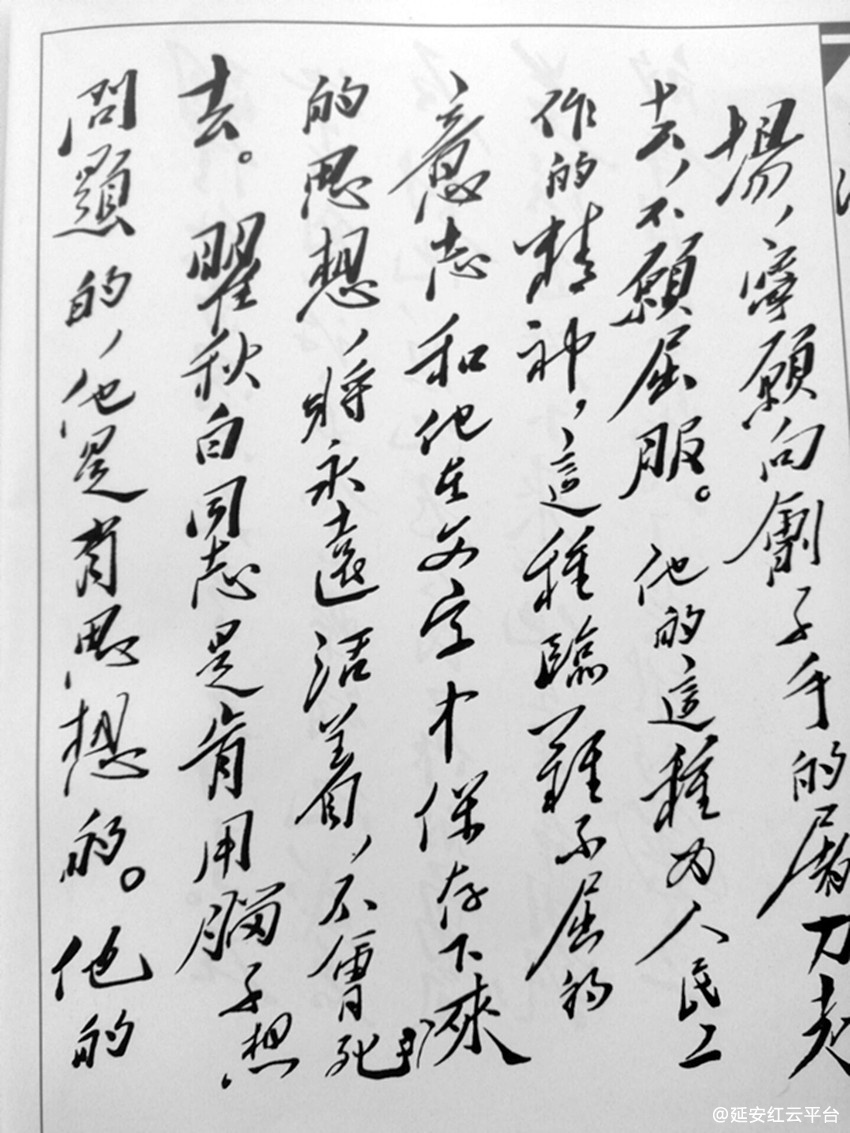 場，寧願向劊子手的屠刀走
去，不願屈服。他的這種为人民工
作的精神，這種臨難不屈的
意志和他在文字中保存下來
的思想，將永遠活着，不會死
去。瞿秋白同志是肯用腦子想
問題的，他是有思想的。他的
@延安红云平台